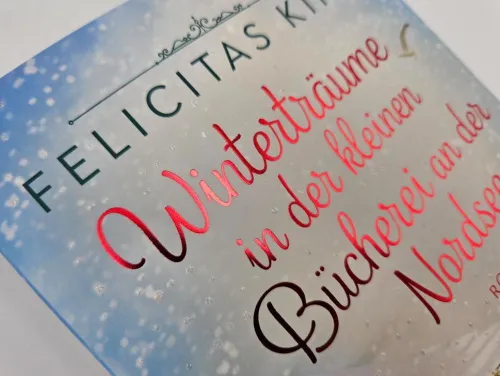 FELICITAS
Winterträume
in der kleinen
Bücherei an der